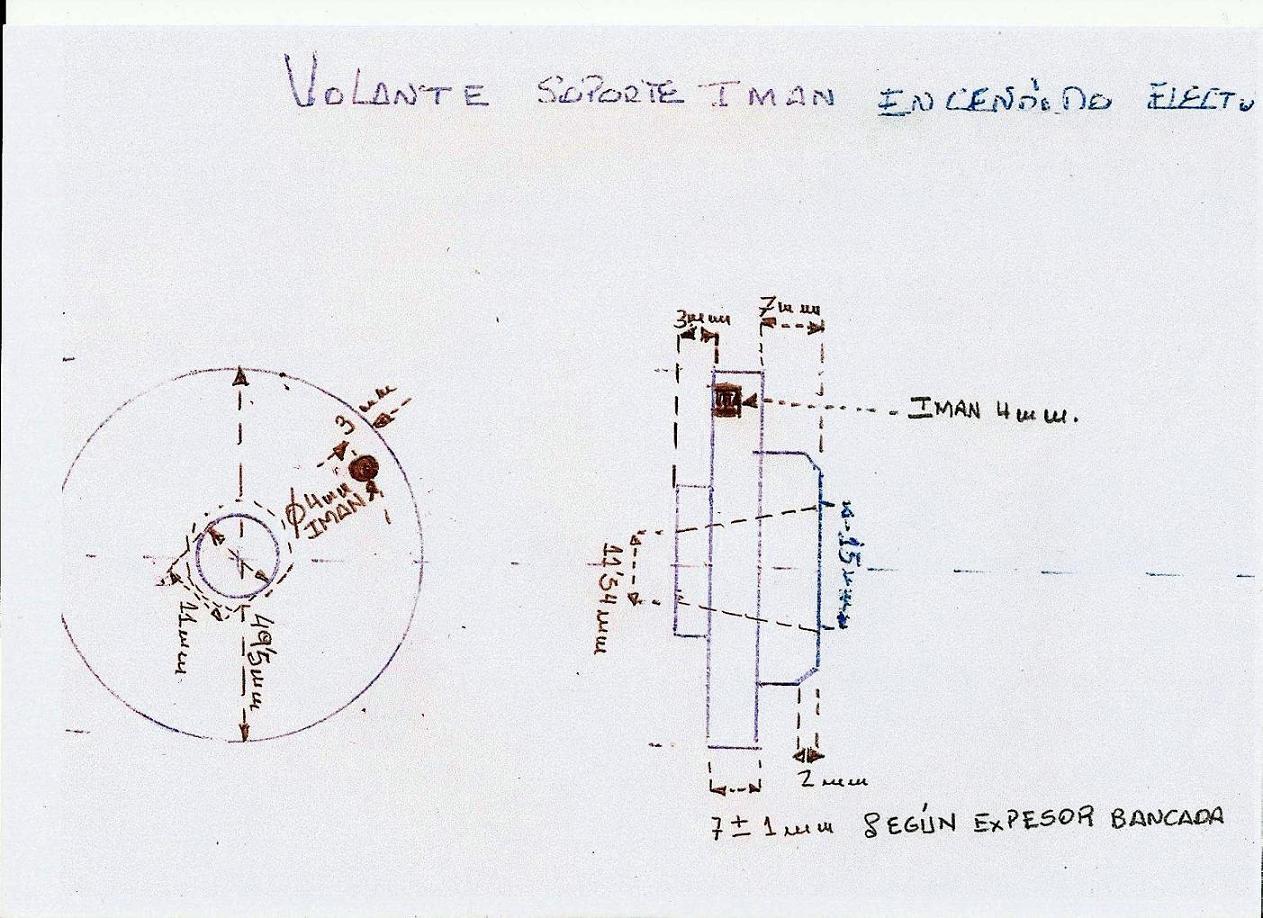 VOLANTE SOPORTE IMAN ENCENDIDO ELECTU
7mm
3mm
IMAN 4mm.
3 mm
Ø4mm
IMAN
11mm
49'5mm
11'54mm
15mm
2mm
7 ± 1mm SEGÚN EXPESOR BANCADA